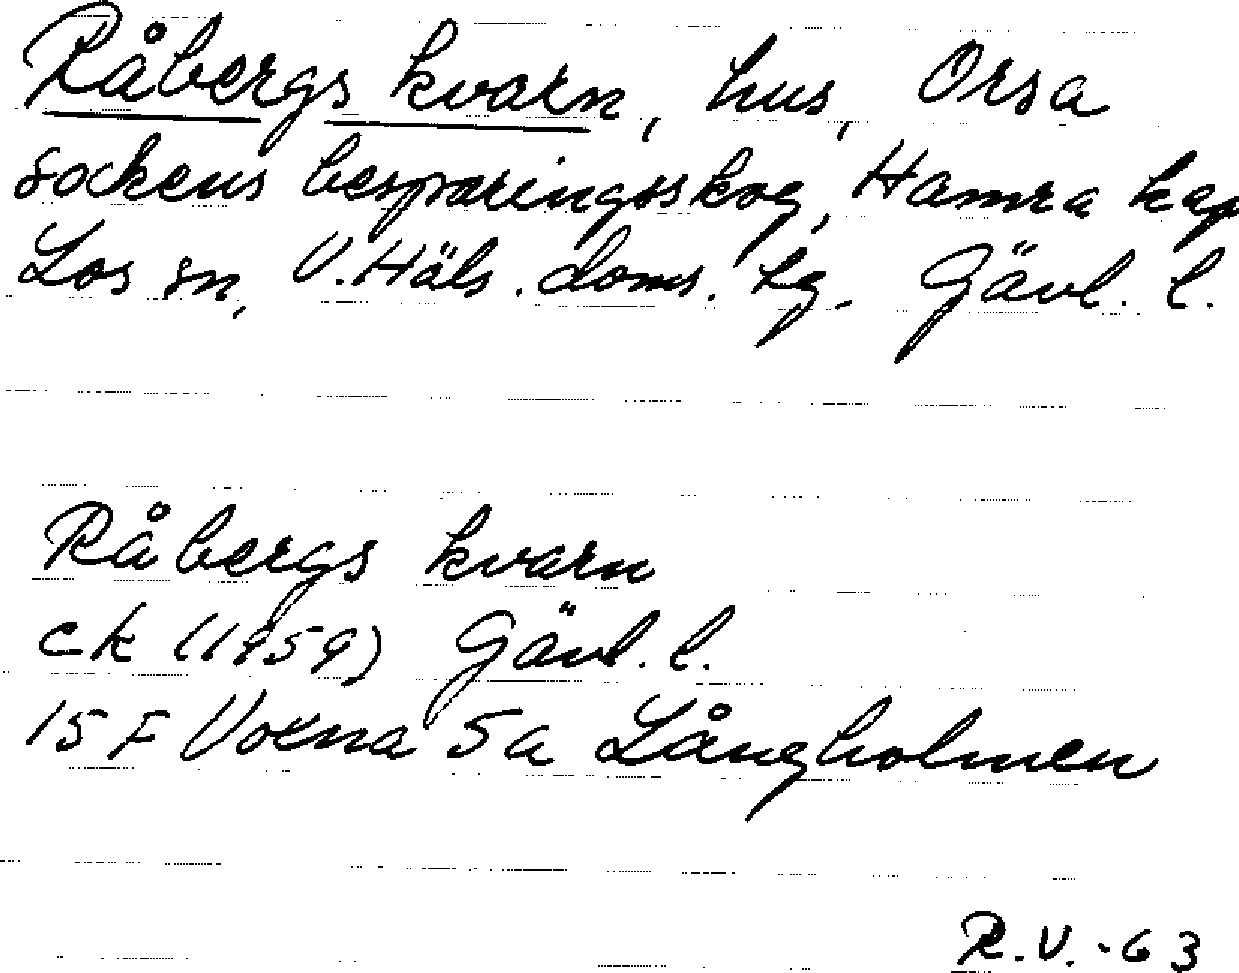 Råbergs kvarn, hus, Orsa
sockens besparingsskog, Hamra kap
Los sn, V. Häls. doms. tg. Gävl. l.
Råbergs kvarn
ek (1959) Gävl. l.
15 F Voxna 5a Långholmen
R.V.-63